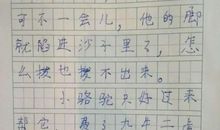 可不一会儿，他的脚
就陷进沙子里了，怎
么拔也拔不出来。
小骆驼只好过来
帮它 费了九牛二虎